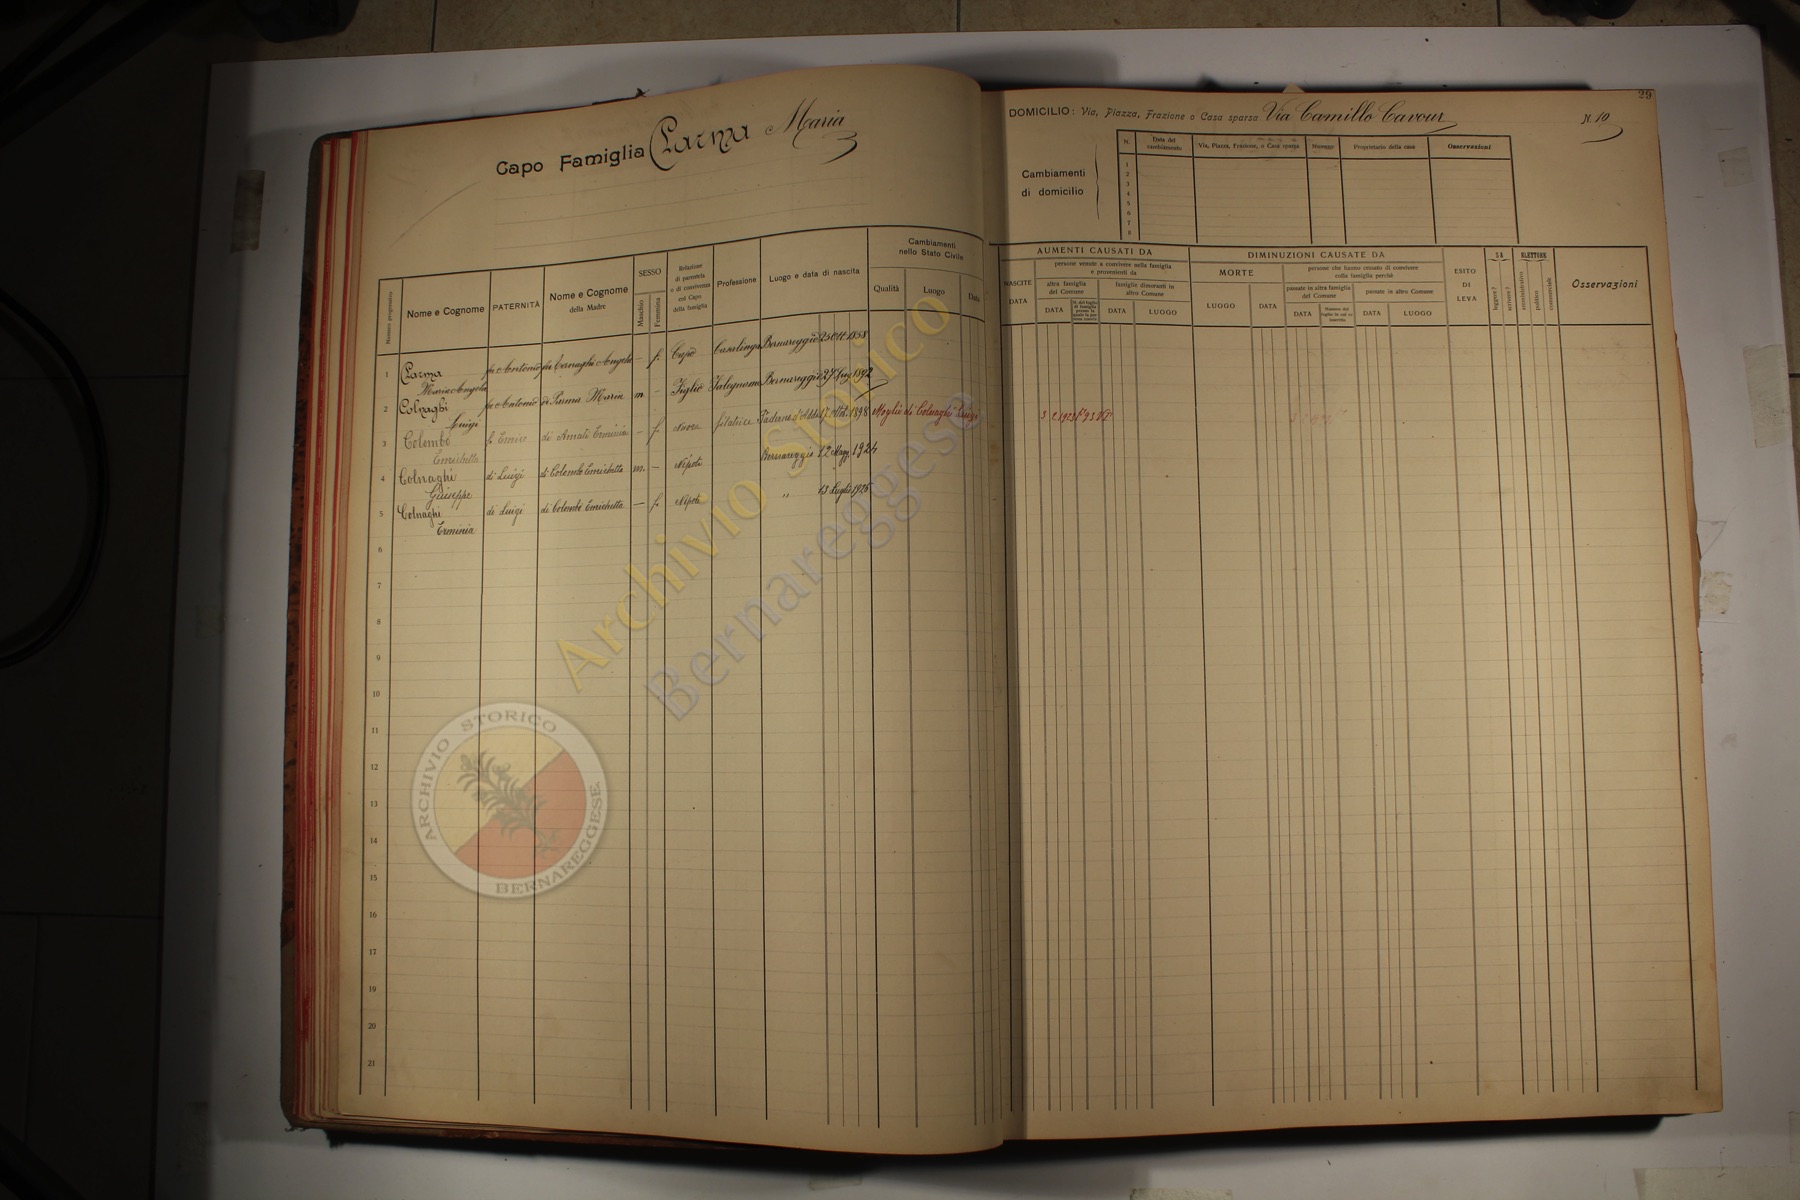 Capo Famiglia Parma Maria
Numero progressivo
Nome e Cognome
PATERNITÀ
Nome e Cognome
della Madre
SESSO
Maschio
Femmina
Relazione
di parentela
o di convivenza
col Capo
della famiglia
Professione
Luogo e data di nascita
Cambiamenti
nello Stato Civile
Qualità
Luogo
Data
1 Parma fu Antonio fu Vernaghi Angela — f. Capo Casalinga Bernareggio 25 Ott 1858
Maria Angela
2 Colnaghi fu Antonio di Parma Maria m — Figlio Falegname Bernareggio 27 Lug 1892
Luigi
3 Colombo di Amati Erminia — f. Nuora filatrice Paderno d'Adda 17 1898 Moglie di Colnaghi Luigi
Enrichetta
4 Colnaghi di Luigi di Colombo Enrichetta m. — Nipote Bernareggio 12 Magg. 1924
Giuseppe
5 Colnaghi di Luigi di Colombo Enrichetta — f. Nipote " 13 Luglio 1925
Erminia
6
7
8
9
10
11
12
13
14
15
16
17
18
19
20
21
29
DOMICILIO: Via, Piazza, Frazione o Casa sparsa Via Camillo Cavour N. 10
Cambiamenti
di domicilio
N.
Data del
cambiamento
Via, Piazza, Frazione, o Casa sparsa
Numero
Proprietario della casa
Osservazioni
1
2
3
4
5
6
7
8
NASCITE
DATA
AUMENTI CAUSATI DA
persone venute a convivere nella famiglia
e provenienti da
altra famiglia
del Comune
famiglie dimoranti in
altro Comune
DATA
DATA
LUOGO
DIMINUZIONI CAUSATE DA
MORTE
LUOGO
DATA
persone che hanno cessato di convivere
colla famiglia perchè
passate in altra famiglia
del Comune
passate in altro Comune
DATA
DATA
LUOGO
ESITO
DI
LEVA
SA
leggere?
scrivere?
ELETTORE
amministrativo
politico
commerciale
Osservazioni
Archivio Storico
Bernareggese
ARCHIVIO STORICO
BERNAREGGESE